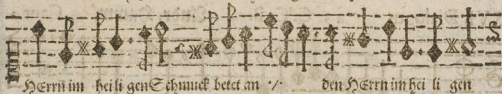 HErrn im hei li gen Schmuck betet an ·/· den HErrn im hei li gen